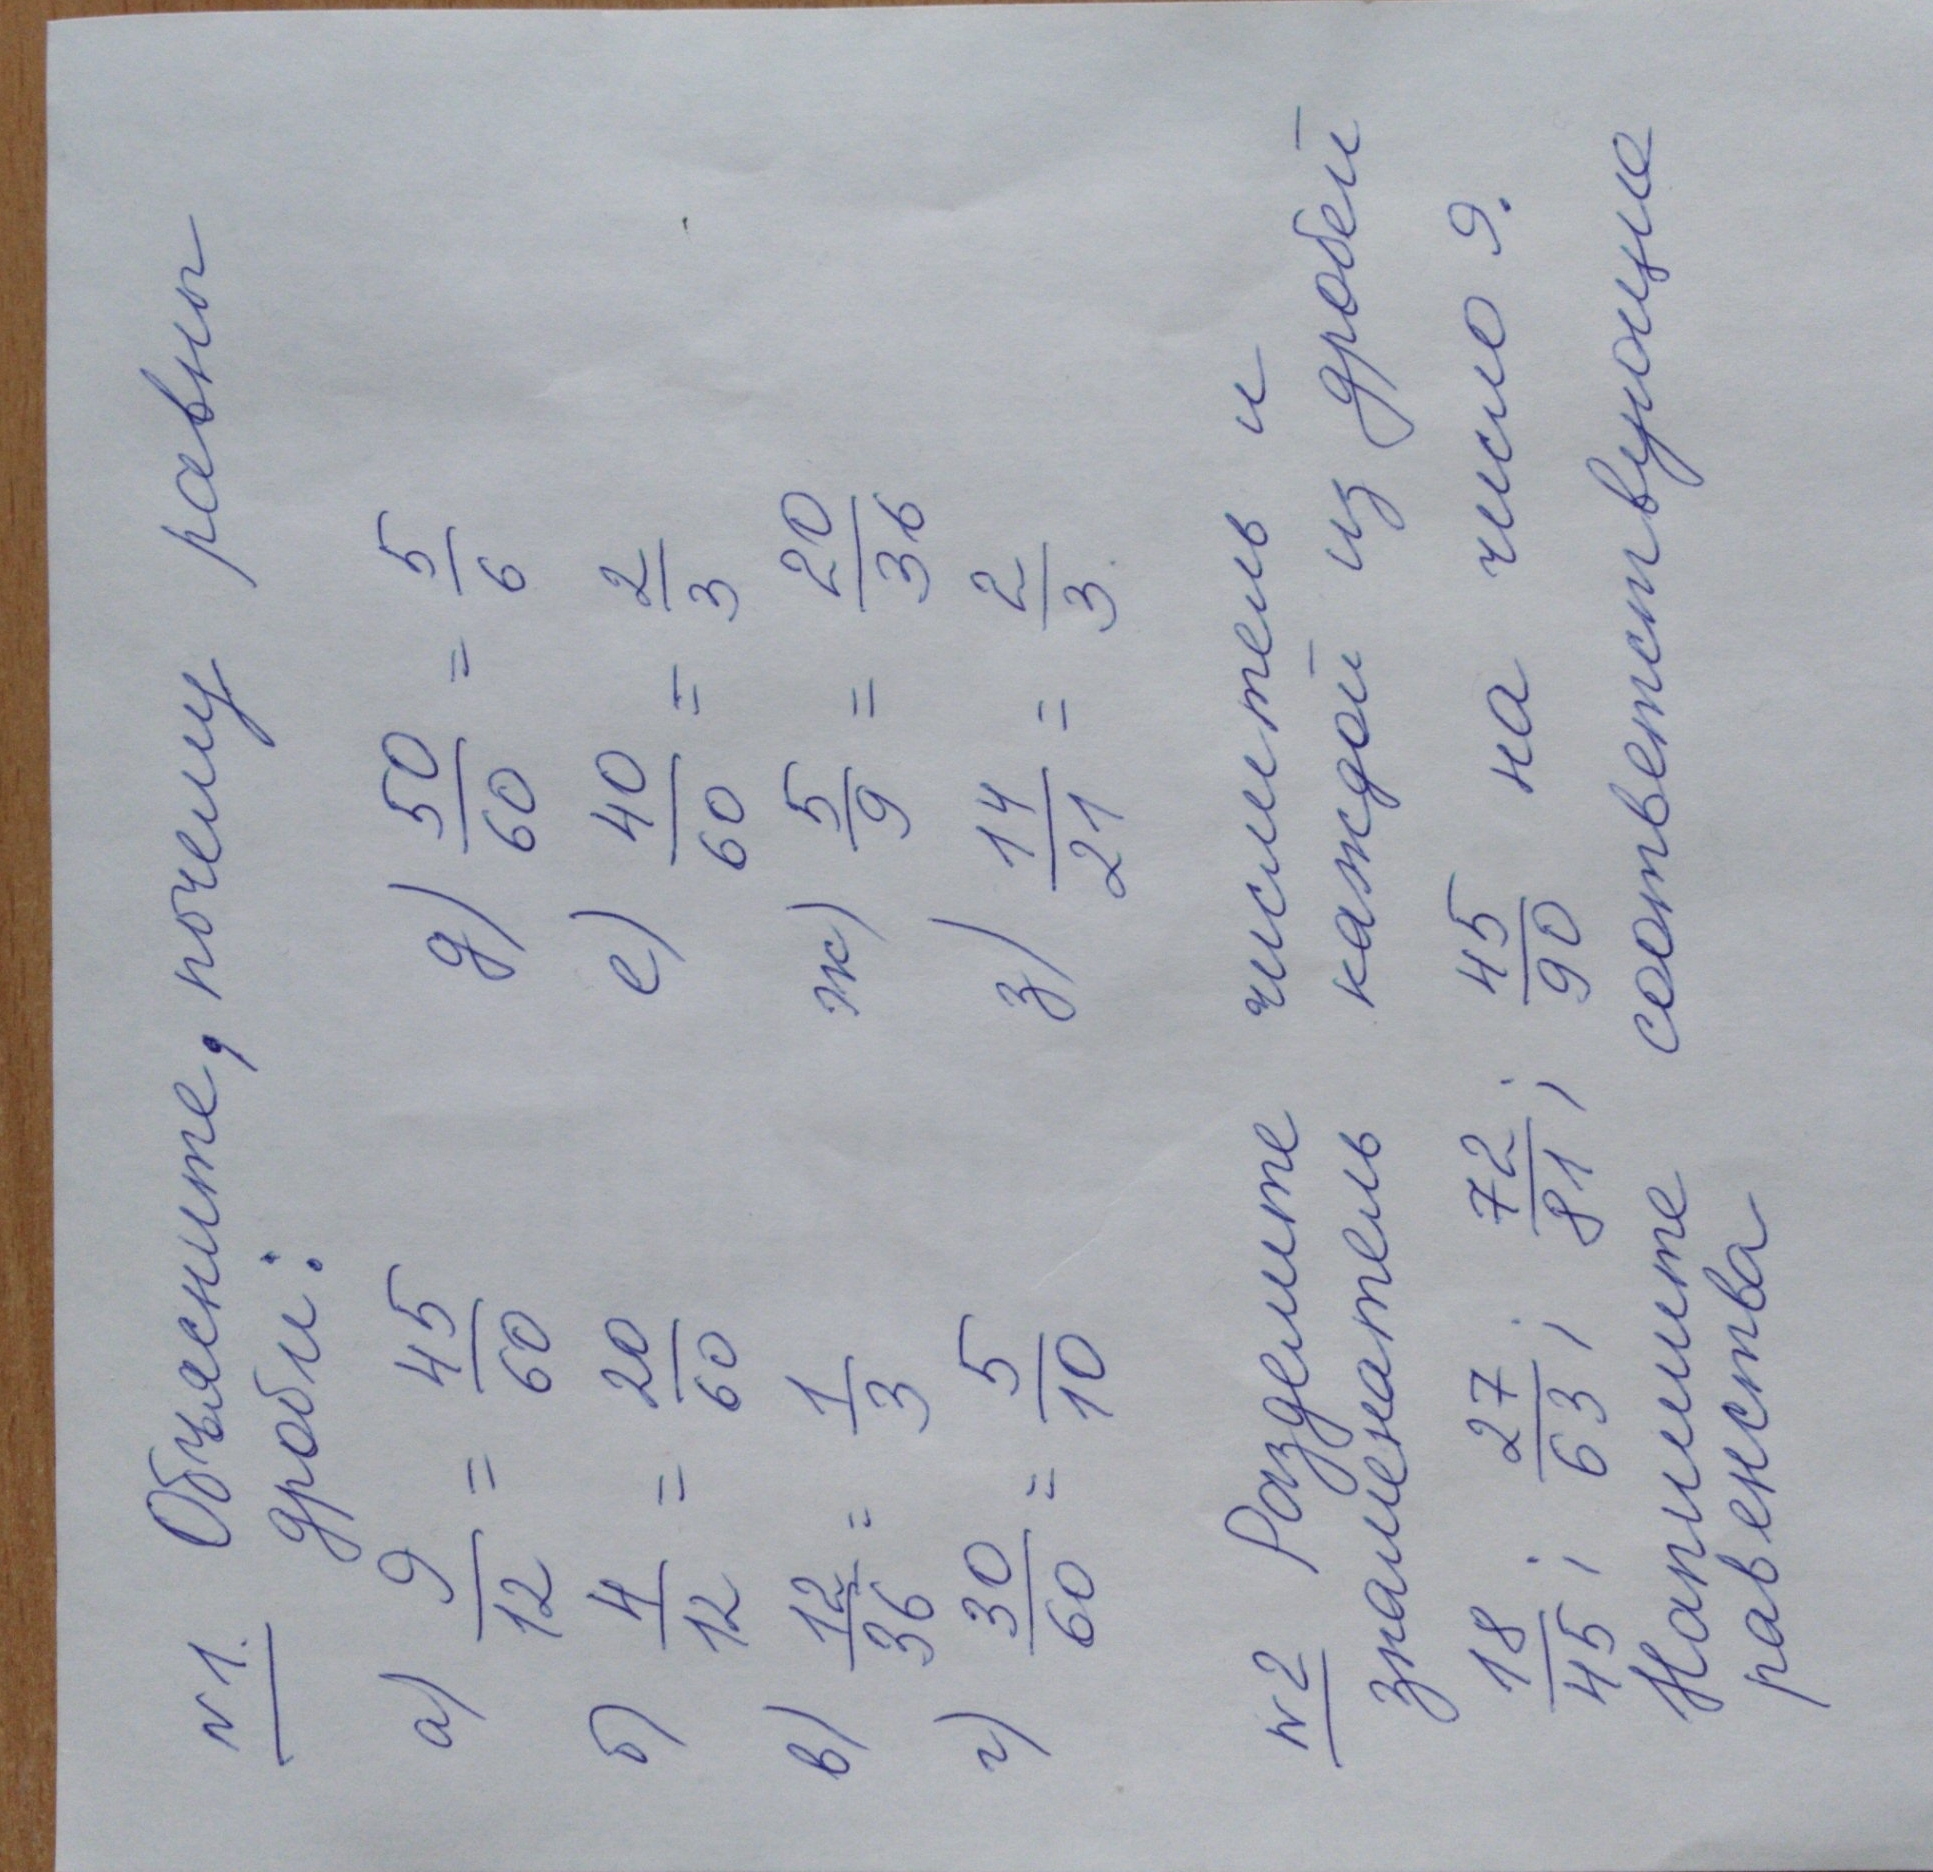 №1. Объясните, почему равны
дроби:
а) 9/12 = 45/60 д) 50/60 = 5/6
б) 4/12 = 20/60 е) 40/60 = 2/3
в) 12/36 = 1/3 ж) 5/9 = 20/36
г) 30/60 = 5/10 з) 14/21 = 2/3
№2 Разделите числитель и
знаменатель каждой из дробей
18/45; 27/63; 72/81; 45/90 на число 9.
Напишите соответствующие
равенства